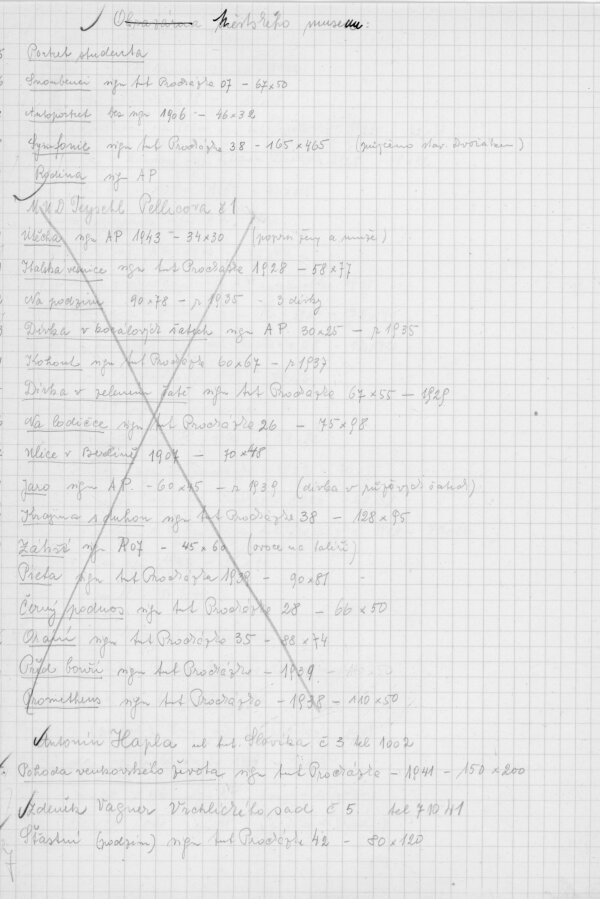 Obrazárna Městského musea:
Portret studenta
Snoubenci sign Ant Procházka 07 – 67×50
Autoportret bez sign 1906 – 46×32
Symfonie sign Ant Procházka 38 – 165×465 (půjčeno stav. Dvořákem)
Rodina sign AP
MUD Teyschl Pellicova č 1
Útěcha sign AP 1943 – 34×30 (poprsí ženy a muže)
Italská vesnice sign Ant Procházka 1928 – 58×77
Na podzim 90×78 – r 1935 - 3 dívky
Dívka v korálových šatech sign AP 30×25 – r 1935
Kohout sign Ant Procházka 60×67 – r 1937
Dívka v zeleném šatě sign Ant Procházka 67×55 – 1929
Na lodičce sign Ant Procházka 26 – 75×98
Ulice v Berlíně 1907 – 70×48
Jaro sign AP. – 60×45 – r 1939 (dívka v šatech)
Krajina s duhou sign Ant Procházka 38 – 128×95
Zátiší sign 07 – 45×60 (ovoce na talíři)
Pieta sign Ant Procházka 1939 – 90×81
Černý podnos sign Ant Procházka 28 – 66×50
Orání sign Ant Procházka 35 – 88×74
Před bouří sign Ant Procházka – 1939
Prometheus sign Ant Procházka – 1938 – 110×50
Antonín Hapla ul Ant. Slavíka č 3 tel 1002
Pohoda venkovského života sign Ant Procházka – 1941 – 150×200
Zdeněk Vagner Vrchlického sad č 5. tel 71041
Šťastní (podzim) sign Ant Procházka 42 – 80×120